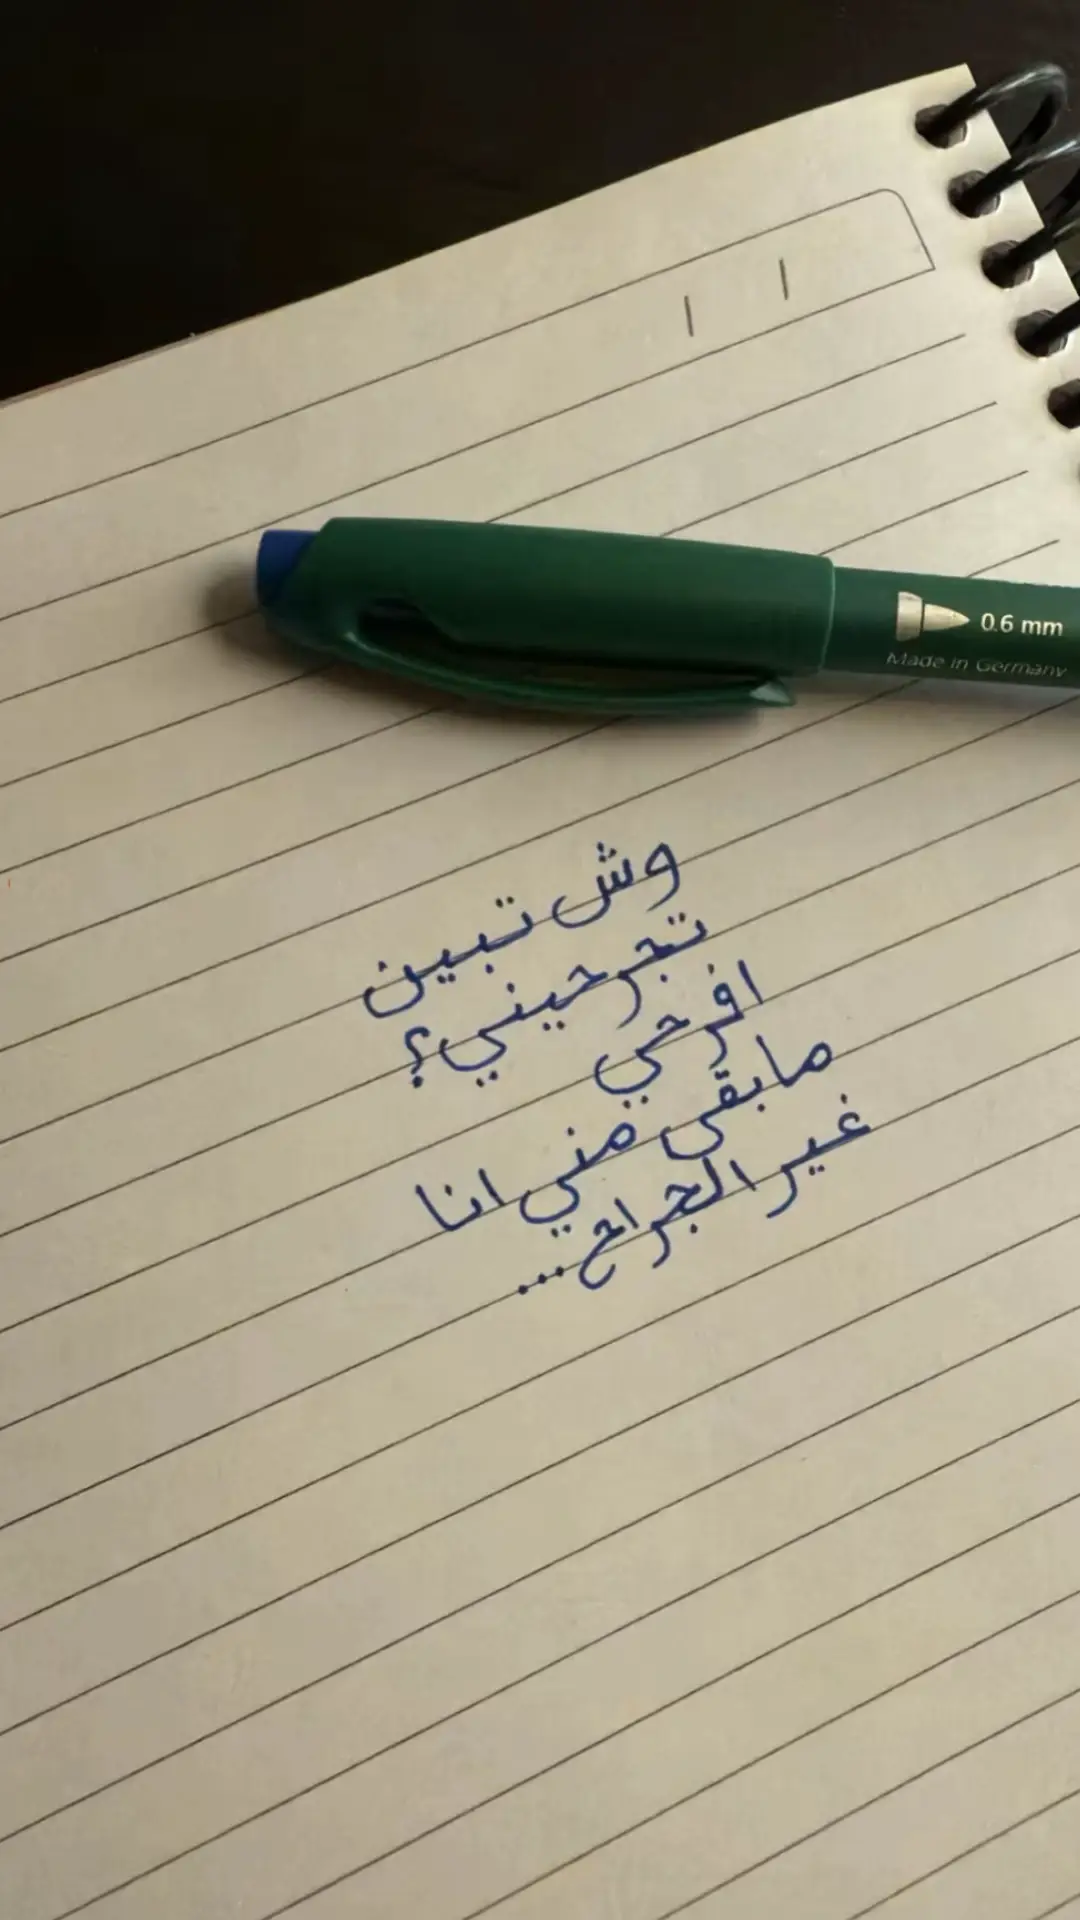 0.6 mm
Made in Germany
وش تبين
تجرحيني؟
افرحي
مابقى مني انا
غير الجراح...